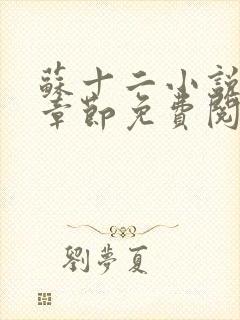 蘇十二小說
章節免費閱
劉夢夏